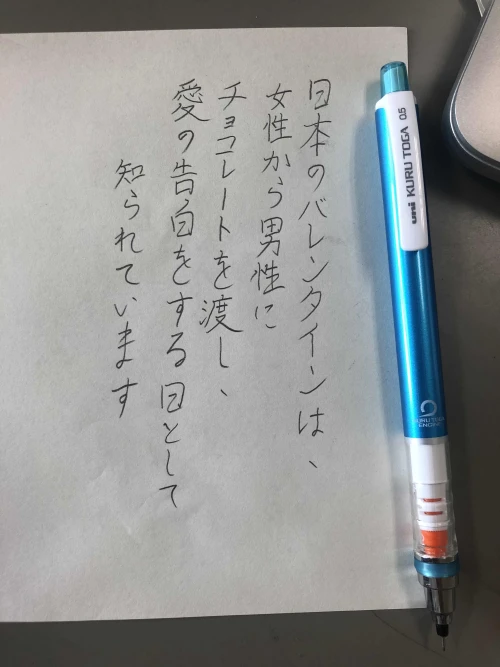 日本のバレンタインは、
女性から男性に
チョコレートを渡し、
愛の告白をする日として
知られています
uni KURU TOGA 0.5
KURU TOGA
ENGINE